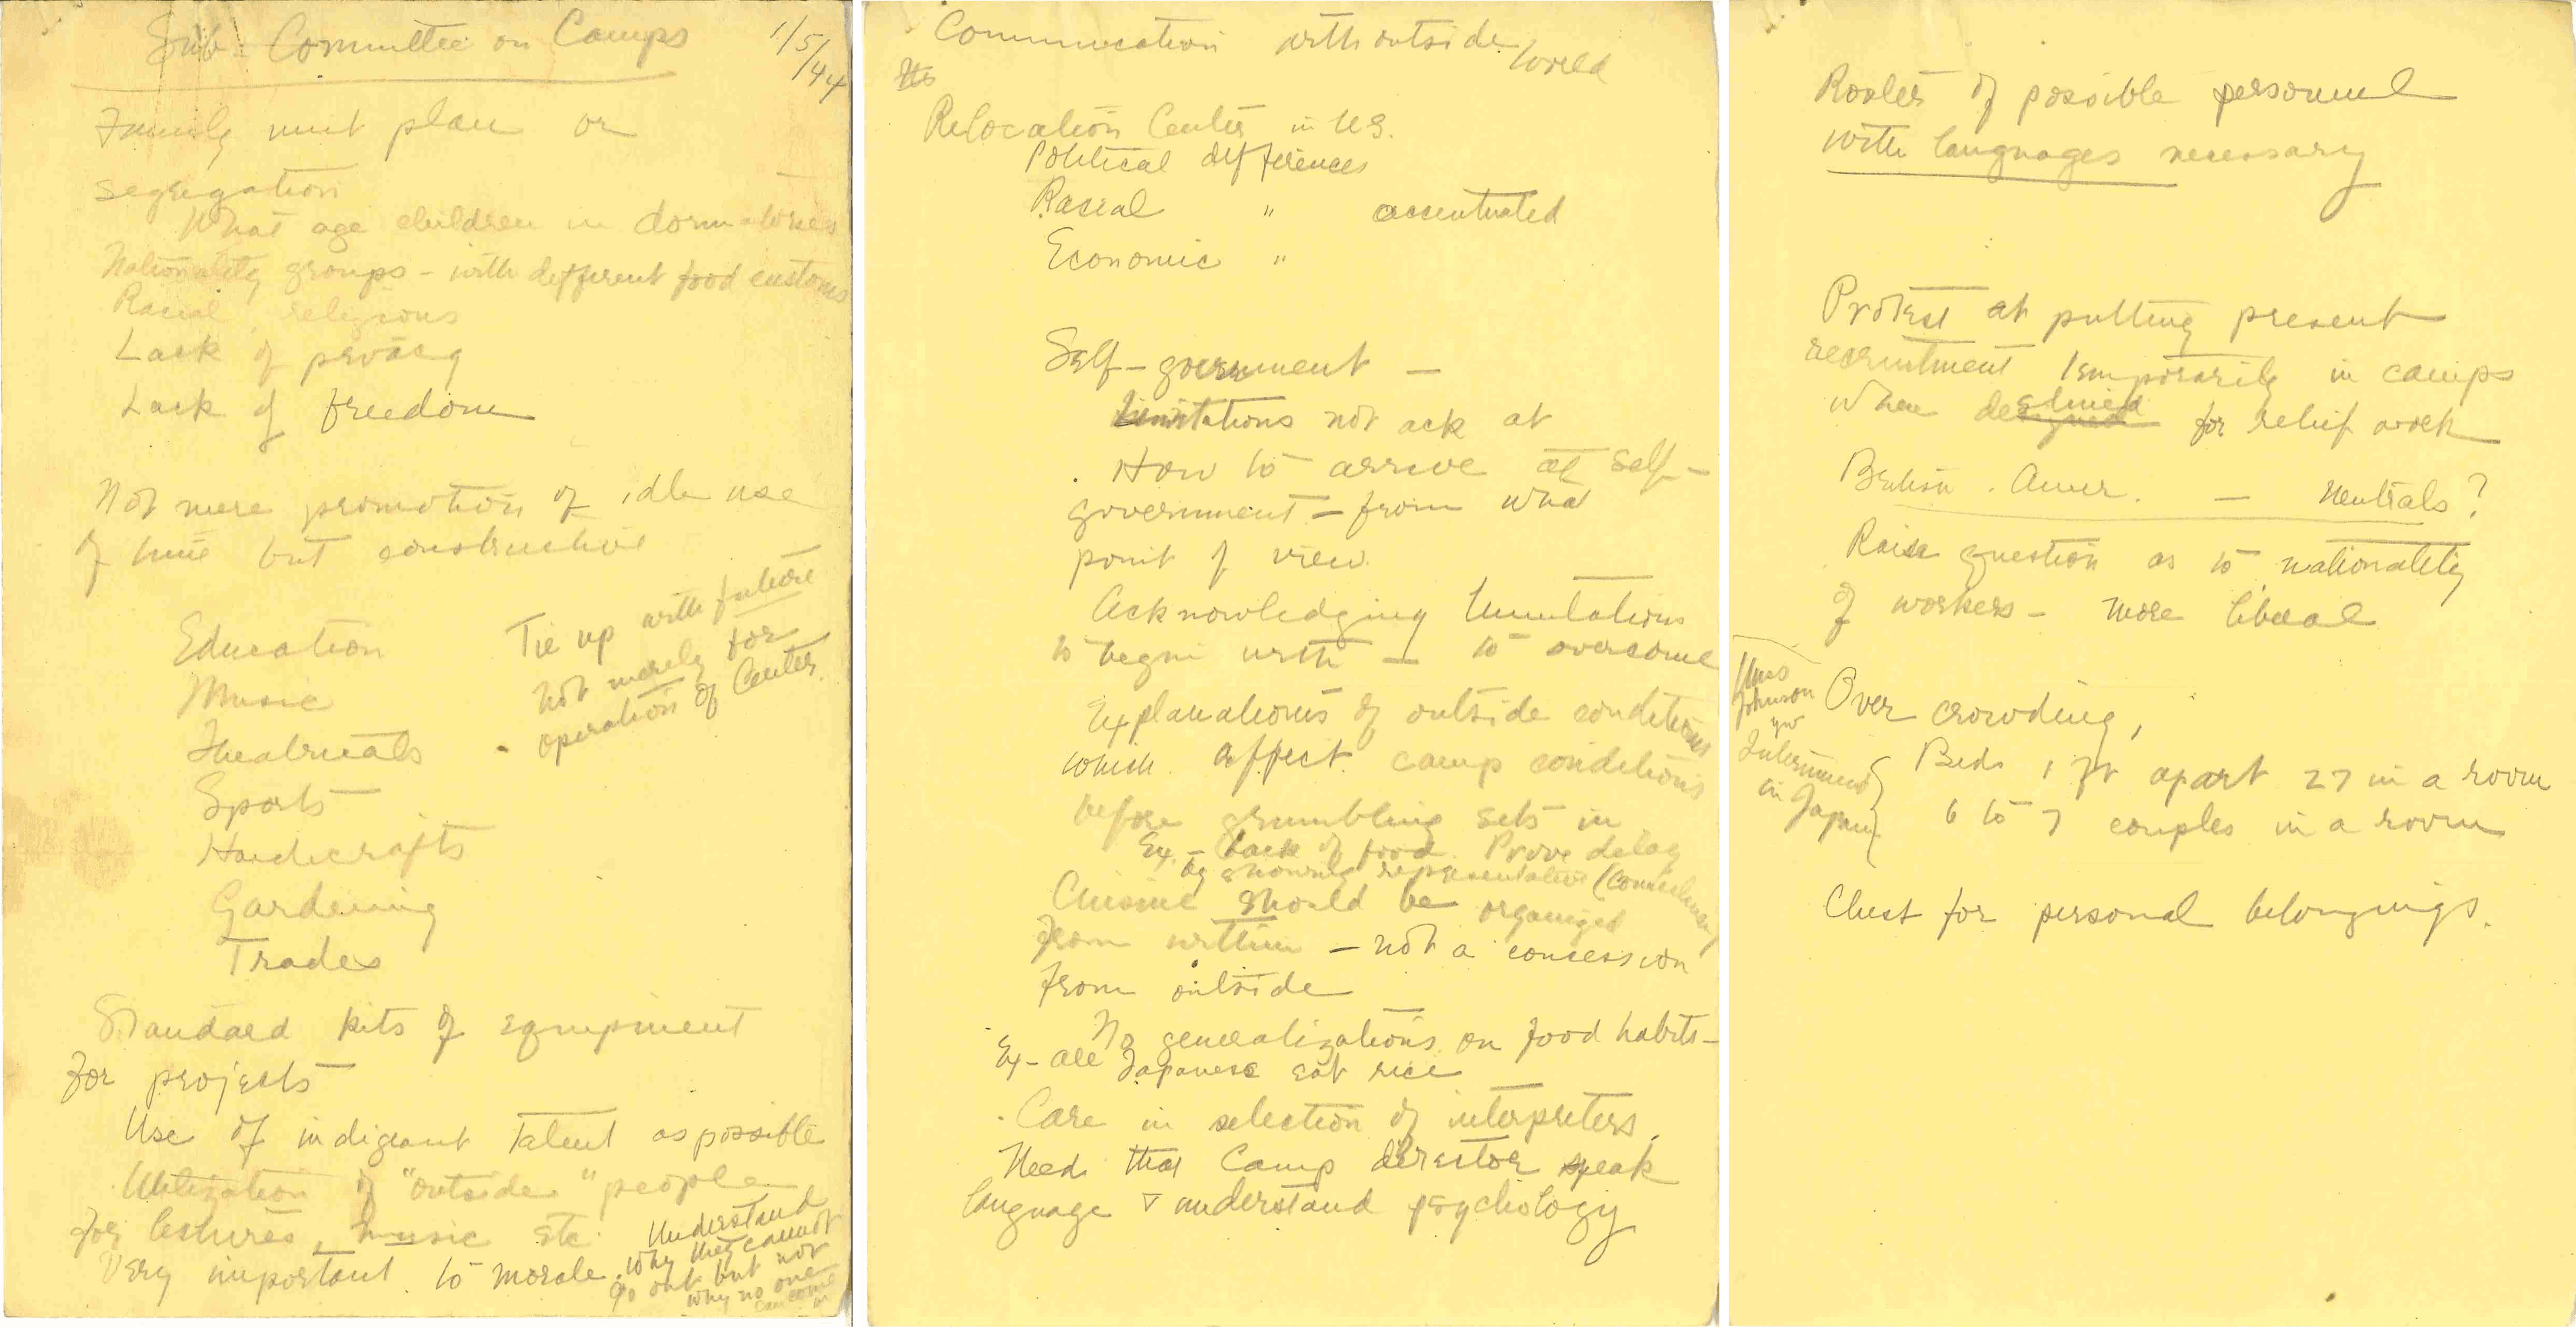 Sub-Committee on Camps
1/5/44
Family unit plan or
segregation
What age children in dormitories
Nationality groups - with different food customs
Racial, religious
Lack of privacy
Lack of freedom
Not mere promotion of idle use
of time but constructive
Education
Music
Theatricals
Sports
Handicrafts
Gardening
Trades
Tie up with future
not merely for
operation of Center.
Standard kits of equipment
for projects
Use of indigeant talent as possible
Utilization of "outside" people
for lectures, music etc.
Very important to morale.
Understand
why they cannot
go out but not
why no one
can come
in
Communication with outside
world
Relocation Center in U.S.
Political differences
Racial " accentuated
Economic "
Self-government -
Limitations not ack at
. How to arrive at self-
government - from what
point of view.
Acknowledging limitations
to begin with - to overcome
Explanations of outside conditions
which affect camp conditions
before grumbling sets in
Ex. - Lack of food. Prove delay
by showing representative (
Cuisine should be organized
from within - not a concession
from outside
No generalizations on food habits -
Ex - all Japanese eat rice
. Care in selection of interpreters.
Need that Camp director speak
language & understand psychology
Roster of possible personnel
with languages necessary
Protest at putting present
recruitment temporarily in camps
when destined for relief work
British. Amer. - Neutrals?
Raise question as to nationality
of workers - more liberal
Miss
Johnson
yw
Internment
in
Japan
Over crowding,
Beds 1 ft apart 27 in a room
6 to 7 couples in a room
Chest for personal belongings.